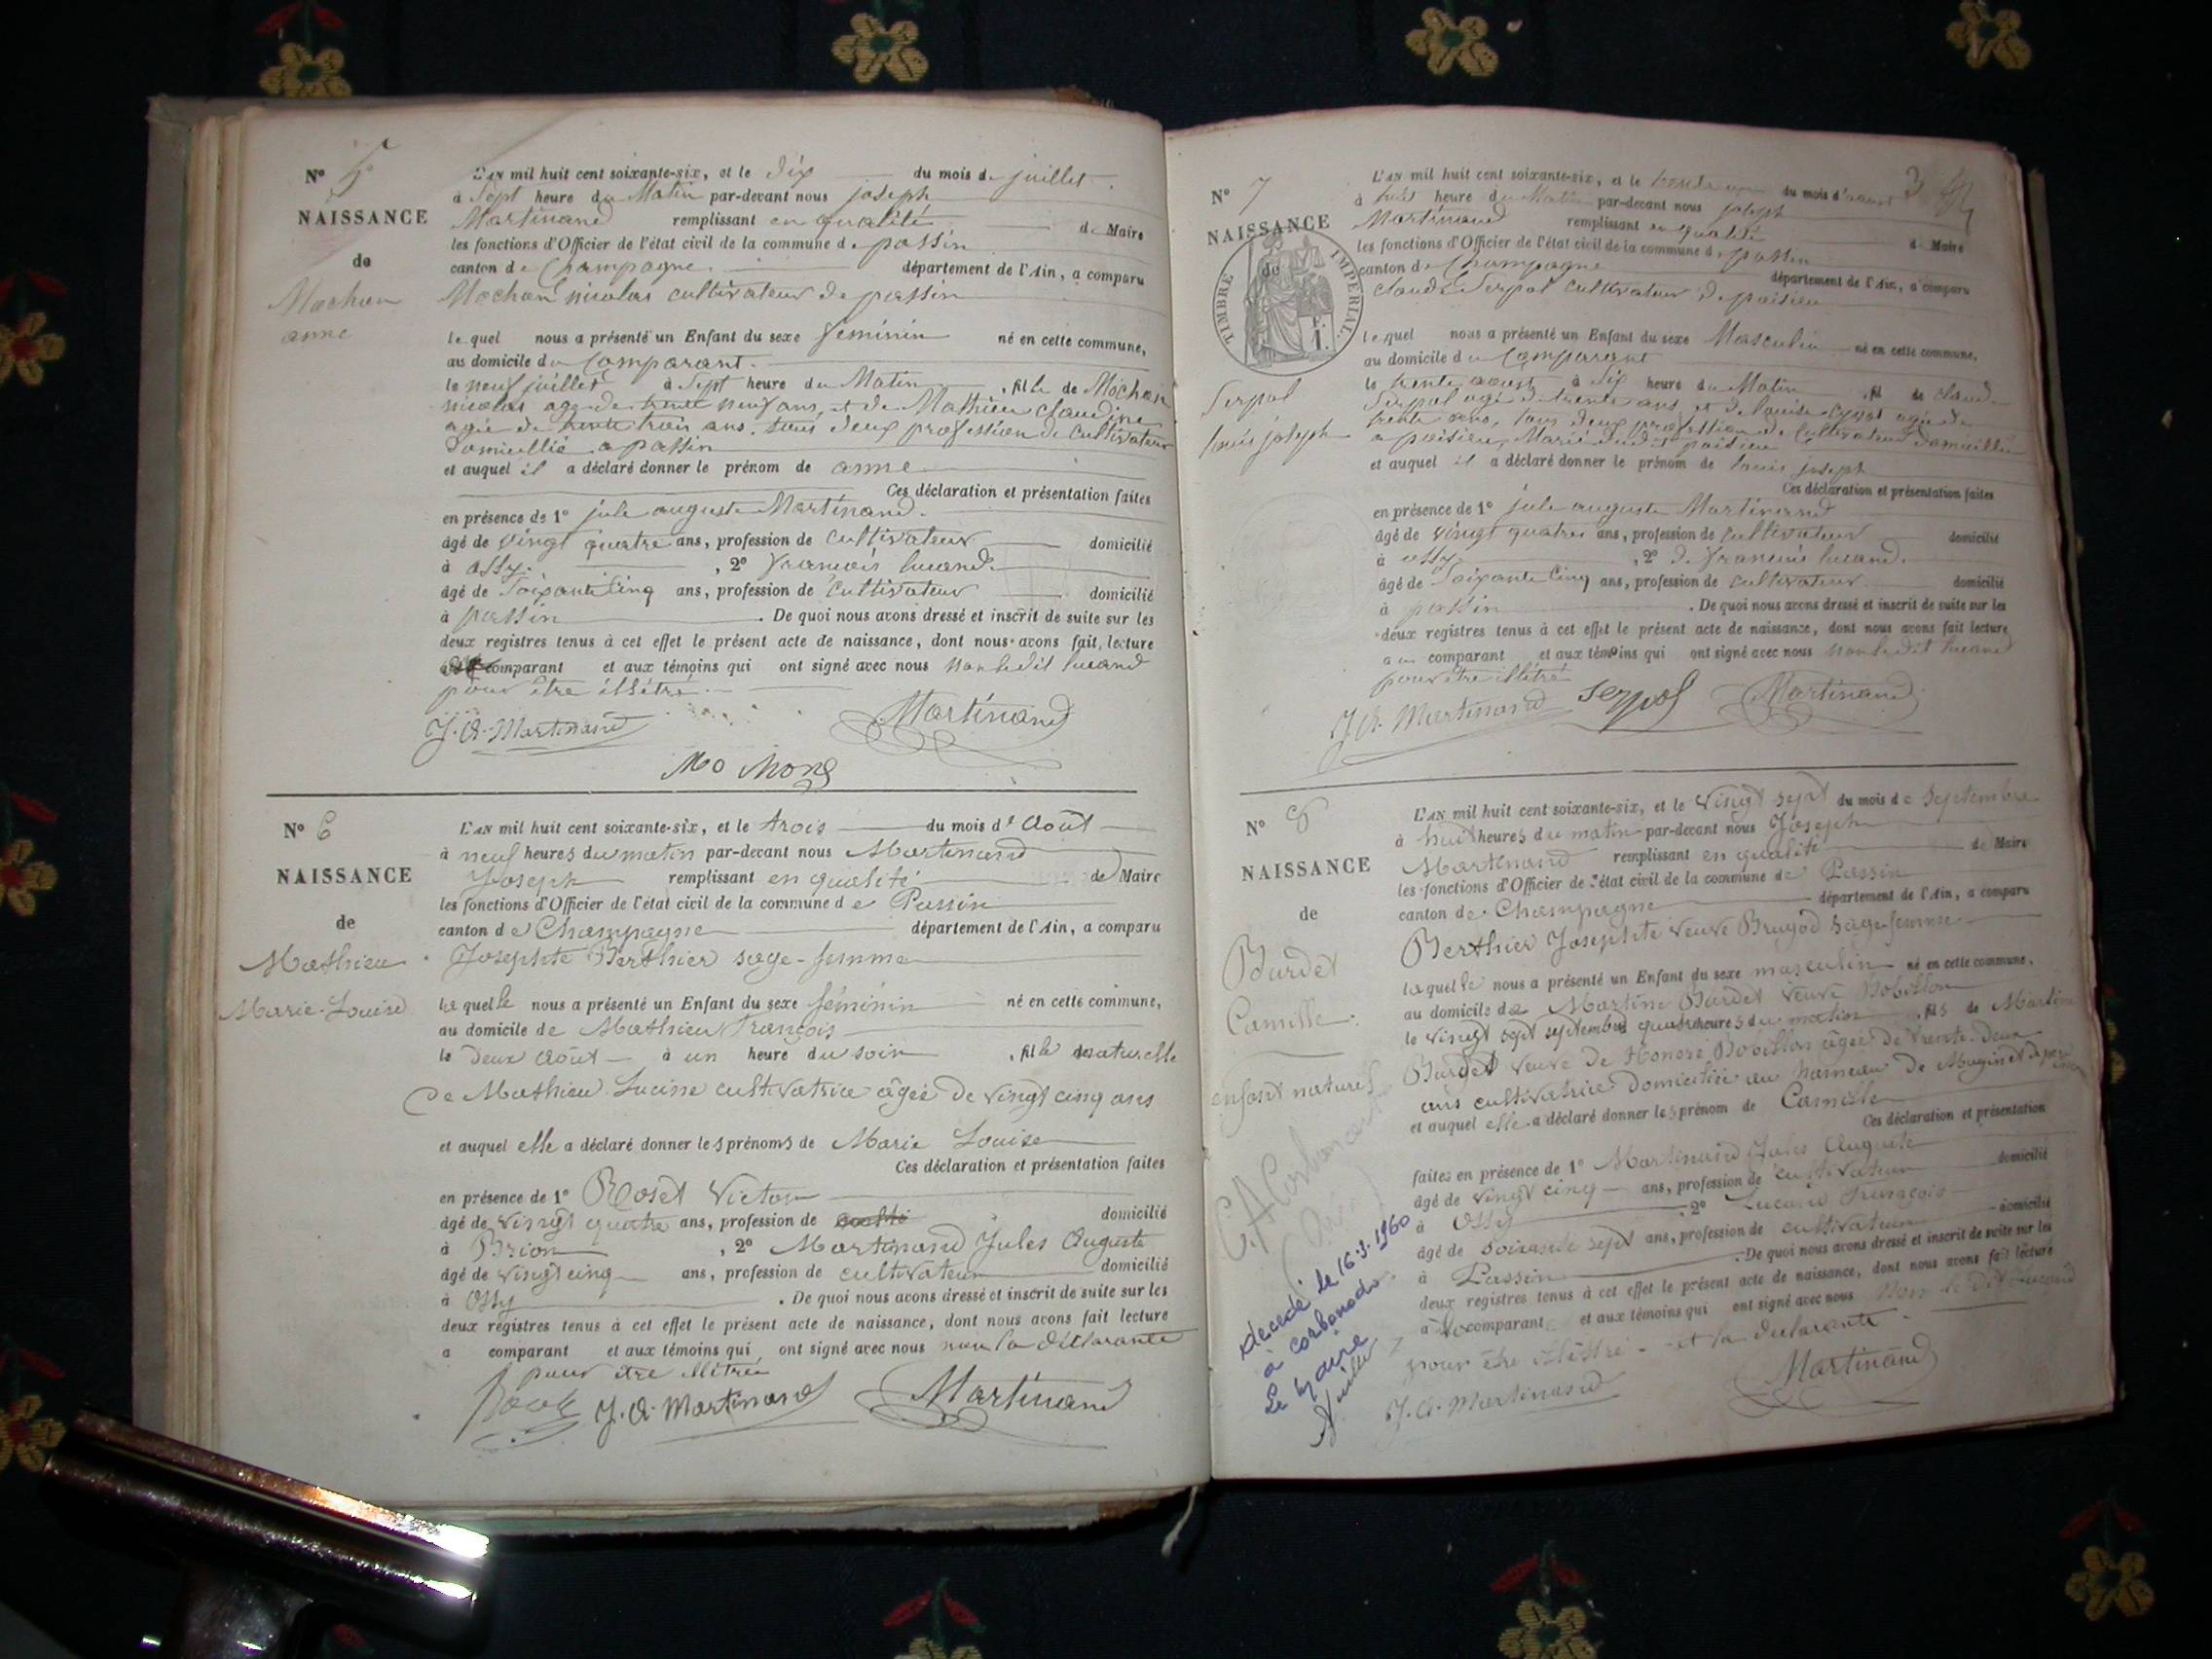 N° 5
NAISSANCE
de
Mochon
anne
L'AN mil huit cent soixante-six, et le dix du mois de juillet.
à Sept heure du Matin par-devant nous joseph
Martinand remplissant en qualité de Maire
les fonctions d'Officier de l'état civil de la commune de passin
canton de Champagne. département de l'Ain, a comparu
Mochon nicolas cultivateur de passin
lequel nous a présenté un Enfant du sexe féminin né en cette commune,
au domicile du Comparant.
le neuf juillet à Sept heure du Matin, fille de Mochon
nicolas agé de trente neuf ans, et de Mathieu claudine
agée de trente trois ans. tous deux profession de cultivateur
Domicillié a passin
et auquel il a déclaré donner le prénom de anne
Ces déclaration et présentation faites
en présence de 1° jule auguste Martinand.
âgé de vingt quatre ans, profession de cultivateur domicilié
à ossy. , 2° françois lucand.
âgé de Soixante Cinq ans, profession de Cultivateur domicilié
à passin. De quoi nous avons dressé et inscrit de suite sur les
deux registres tenus à cet effet le présent acte de naissance, dont nous avons fait lecture
comparant et aux témoins qui ont signé avec nous non ledit lucand
pour être illétré.
J. A. Martinand Martinand
Mo chon
N° 6
NAISSANCE
de
Mathieu
Marie-Louise
L'AN mil huit cent soixante-six, et le trois du mois d'Août
à neuf heures du matin par-devant nous Martinand
Joseph remplissant en qualité de Maire
les fonctions d'Officier de l'état civil de la commune de Passin
canton de Champagne département de l'Ain, a comparu
Josephte Berthier sage-femme
laquelle nous a présenté un Enfant du sexe féminin né en cette commune,
au domicile de Mathieu François
le deux Août à un heure du soir, fille naturelle
de Mathieu Lucine cultivatrice âgée de vingt cinq ans
et auquel elle a déclaré donner les prénoms de Marie Louise
Ces déclaration et présentation faites
en présence de 1° Roset Victor
âgé de vingt quatre ans, profession de domicilié
à Brion , 2° Martinand Jules Auguste
âgé de vingt cinq ans, profession de cultivateur domicilié
à Ossy. De quoi nous avons dressé et inscrit de suite sur les
deux registres tenus à cet effet le présent acte de naissance, dont nous avons fait lecture
a comparant et aux témoins qui ont signé avec nous non la déclarante
pour être illétrée
J. A. Martinand Martinand
N° 7
NAISSANCE
de
TIMBRE IMPERIAL
1 F.
Serpol
louis joseph
L'AN mil huit cent soixante-six, et le trente un du mois d'aout
à huit heure du Matin par-devant nous joseph
Martinand remplissant en qualité de Maire
les fonctions d'Officier de l'état civil de la commune de passin
canton de Champagne département de l'Ain, a comparu
claude Serpol cultivateur de poisieu
lequel nous a présenté un Enfant du sexe Masculin né en cette commune,
au domicile du Comparant
le trente aoust à Six heure du Matin, fil de claude
Serpol agé de trente ans et de louise agée de
trente ans, tous deux profession de Cultivateur domicillié
a poisieu, Marié dudit poisieu
et auquel il a déclaré donner le prénom de louis joseph
Ces déclaration et présentation faites
en présence de 1° jule auguste Martinand
âgé de vingt quatre ans, profession de cultivateur domicilié
à ossy , 2° de francois lucand.
âgé de Soixante Cinq ans, profession de cultivateur domicilié
à passin. De quoi nous avons dressé et inscrit de suite sur les
deux registres tenus à cet effet le présent acte de naissance, dont nous avons fait lecture
au comparant et aux témoins qui ont signé avec nous non ledit lucand
pour être illétré
J. A. Martinand Serpol Martinand
N° 8
NAISSANCE
de
Burdet
Camille
enfant naturel
décédé le 16.3.1960
à Corbonod
Le Maire
L'AN mil huit cent soixante-six, et le vingt sept du mois de Septembre
à huit heures du matin par-devant nous Joseph
Martinand remplissant en qualité de Maire
les fonctions d'Officier de l'état civil de la commune de Passin
canton de Champagne département de l'Ain, a comparu
Berthier Josephte veuve Brugod sage-femme
laquelle nous a présenté un Enfant du sexe masculin né en cette commune,
au domicile de Martine Burdet veuve Bobillon
le vingt sept septembre quatre heures du matin, fils de Martine
Burdet veuve de Honoré Bobillon âgée de trente-deux
ans cultivatrice domiciliée au hameau de
et auquel elle a déclaré donner les prénom de Camille
Ces déclaration et présentation
faites en présence de 1° Martinand Jules Auguste
âgé de vingt cinq ans, profession de cultivateur domicilié
à Ossy , 2° Lucand François
âgé de soixante sept ans, profession de cultivateur domicilié
à Passin. De quoi nous avons dressé et inscrit de suite sur les
deux registres tenus à cet effet le présent acte de naissance, dont nous avons fait lecture
à la comparant et aux témoins qui ont signé avec nous Non le dit Lucand
pour être illétré - et la déclarante.
J. A. Martinand Martinand